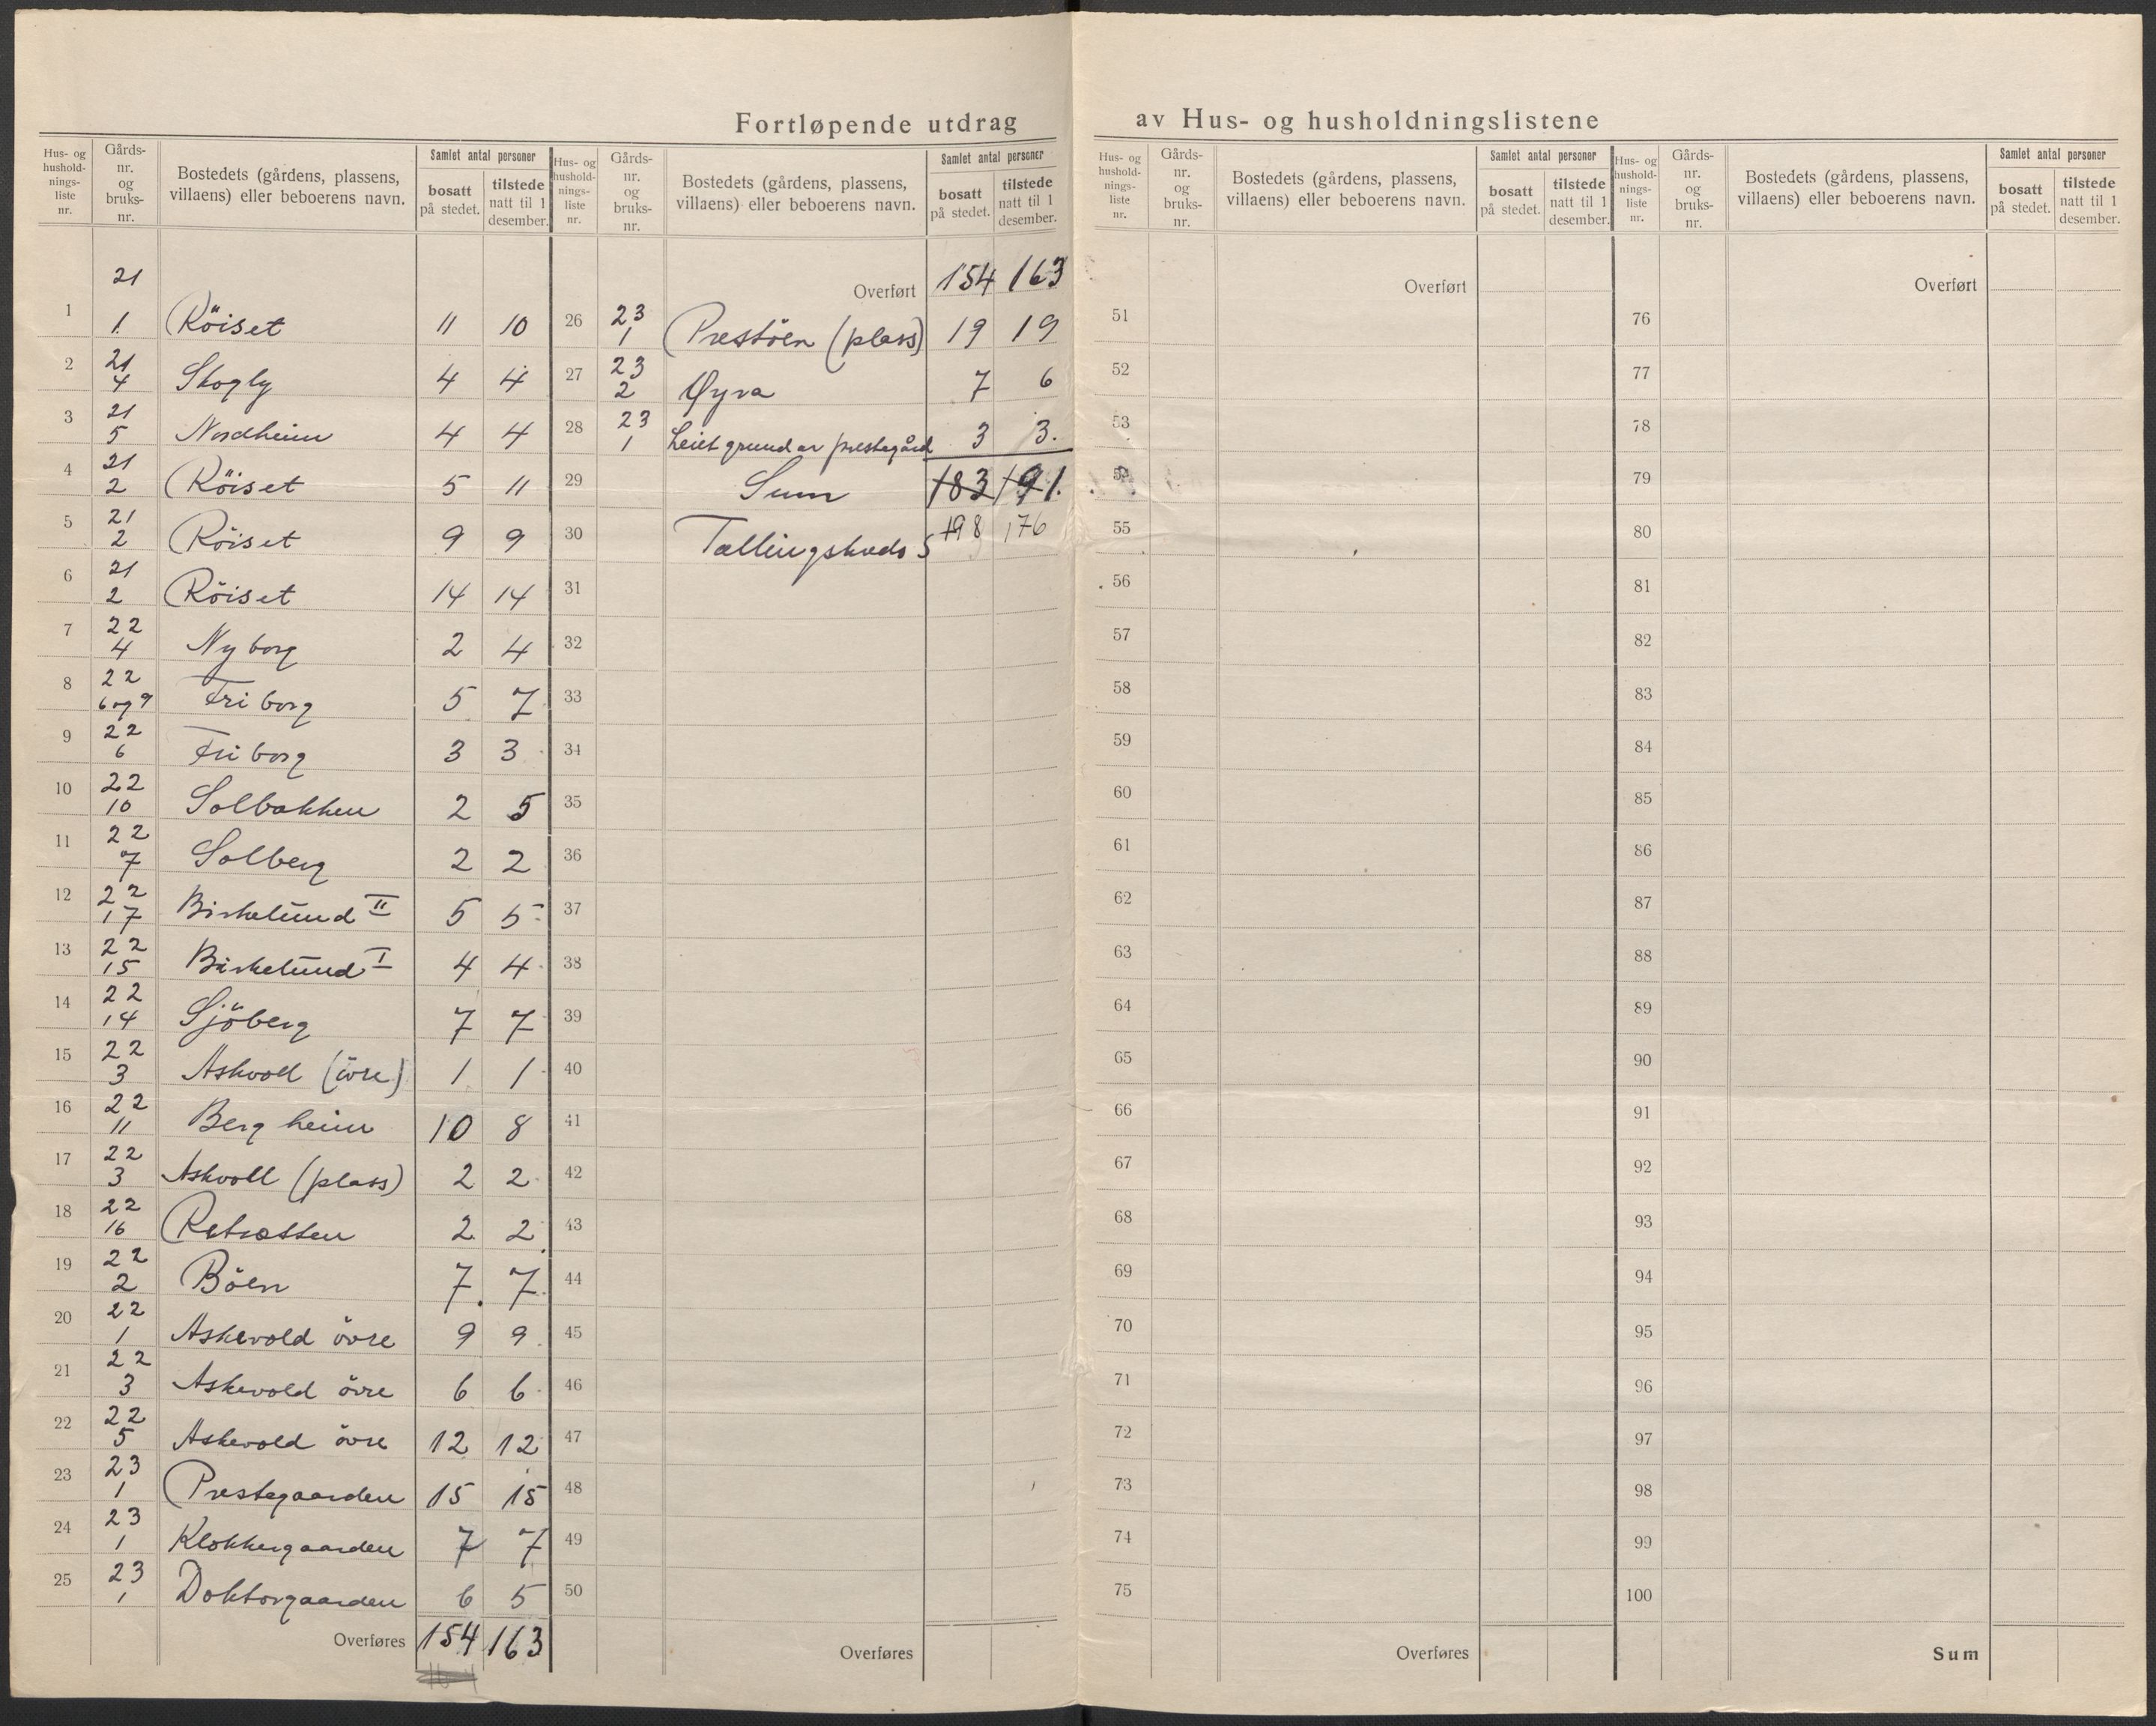 Fortløpende utdrag av Hus- og husholdningslistene
Hus- og hushold-nings-liste nr. Gårds-nr. og bruks-nr. Bostedets (gårdens, plassens, villaens) eller beboerens navn. Samlet antal personer bosatt på stedet. tilstede natt til 1 desember.
21
1 1 Röiset 11 10
2 21 4 Skogly 4 4
3 21 5 Nordheim 4 4
4 21 2 Röiset 5 11
5 21 2 Röiset 9 9
6 21 2 Röiset 14 14
7 22 4 Nyborg 2 4
8 22 6 og 9 Friborg 5 7
9 22 6 Friborg 3 3
10 22 10 Solbakken 2 5
11 22 7 Solberg 2 2
12 22 17 Birkelund II 5 5
13 22 15 Birkelund I 4 4
14 22 14 Sjöberg 7 7
15 22 3 Askvoll (övre) 1 1
16 22 11 Bergheim 10 8
17 22 3 Askvoll (plass) 2 2
18 22 16 Retrætten 2 2
19 22 2 Böen 7 7
20 22 1 Askevold övre 9 9
21 22 3 Askevold övre 6 6
22 22 5 Askevold övre 12 12
23 23 1 Prestegaarden 15 15
24 23 1 Klokkergaarden 7 7
25 23 1 Doktorgaarden 6 5
Overføres 154 163
Hus- og hushold-nings-liste nr. Gårds-nr. og bruks-nr. Bostedets (gårdens, plassens, villaens) eller beboerens navn. Samlet antal personer bosatt på stedet. tilstede natt til 1 desember.
Overført 154 163
26 23 1 Prestöen (plass) 19 19
27 23 2 Øyra 7 6
28 23 1 Leiet grund av prestegård 3 3.
29 Sum 183 191.
30 Tællingskreds 5 198 176
31
32
33
34
35
36
37
38
39
40
41
42
43
44
45
46
47
48
49
50
Overføres
Hus- og hushold-nings-liste nr. Gårds-nr. og bruks-nr. Bostedets (gårdens, plassens, villaens) eller beboerens navn. Samlet antal personer bosatt på stedet. tilstede natt til 1 desember.
Overført
51
52
53
54
55
56
57
58
59
60
61
62
63
64
65
66
67
68
69
70
71
72
73
74
75
Overføres
Hus- og hushold-nings-liste nr. Gårds-nr. og bruks-nr. Bostedets (gårdens, plassens, villaens) eller beboerens navn. Samlet antal personer bosatt på stedet. tilstede natt til 1 desember.
Overført
76
77
78
79
80
81
82
83
84
85
86
87
88
89
90
91
92
93
94
95
96
97
98
99
100
Sum